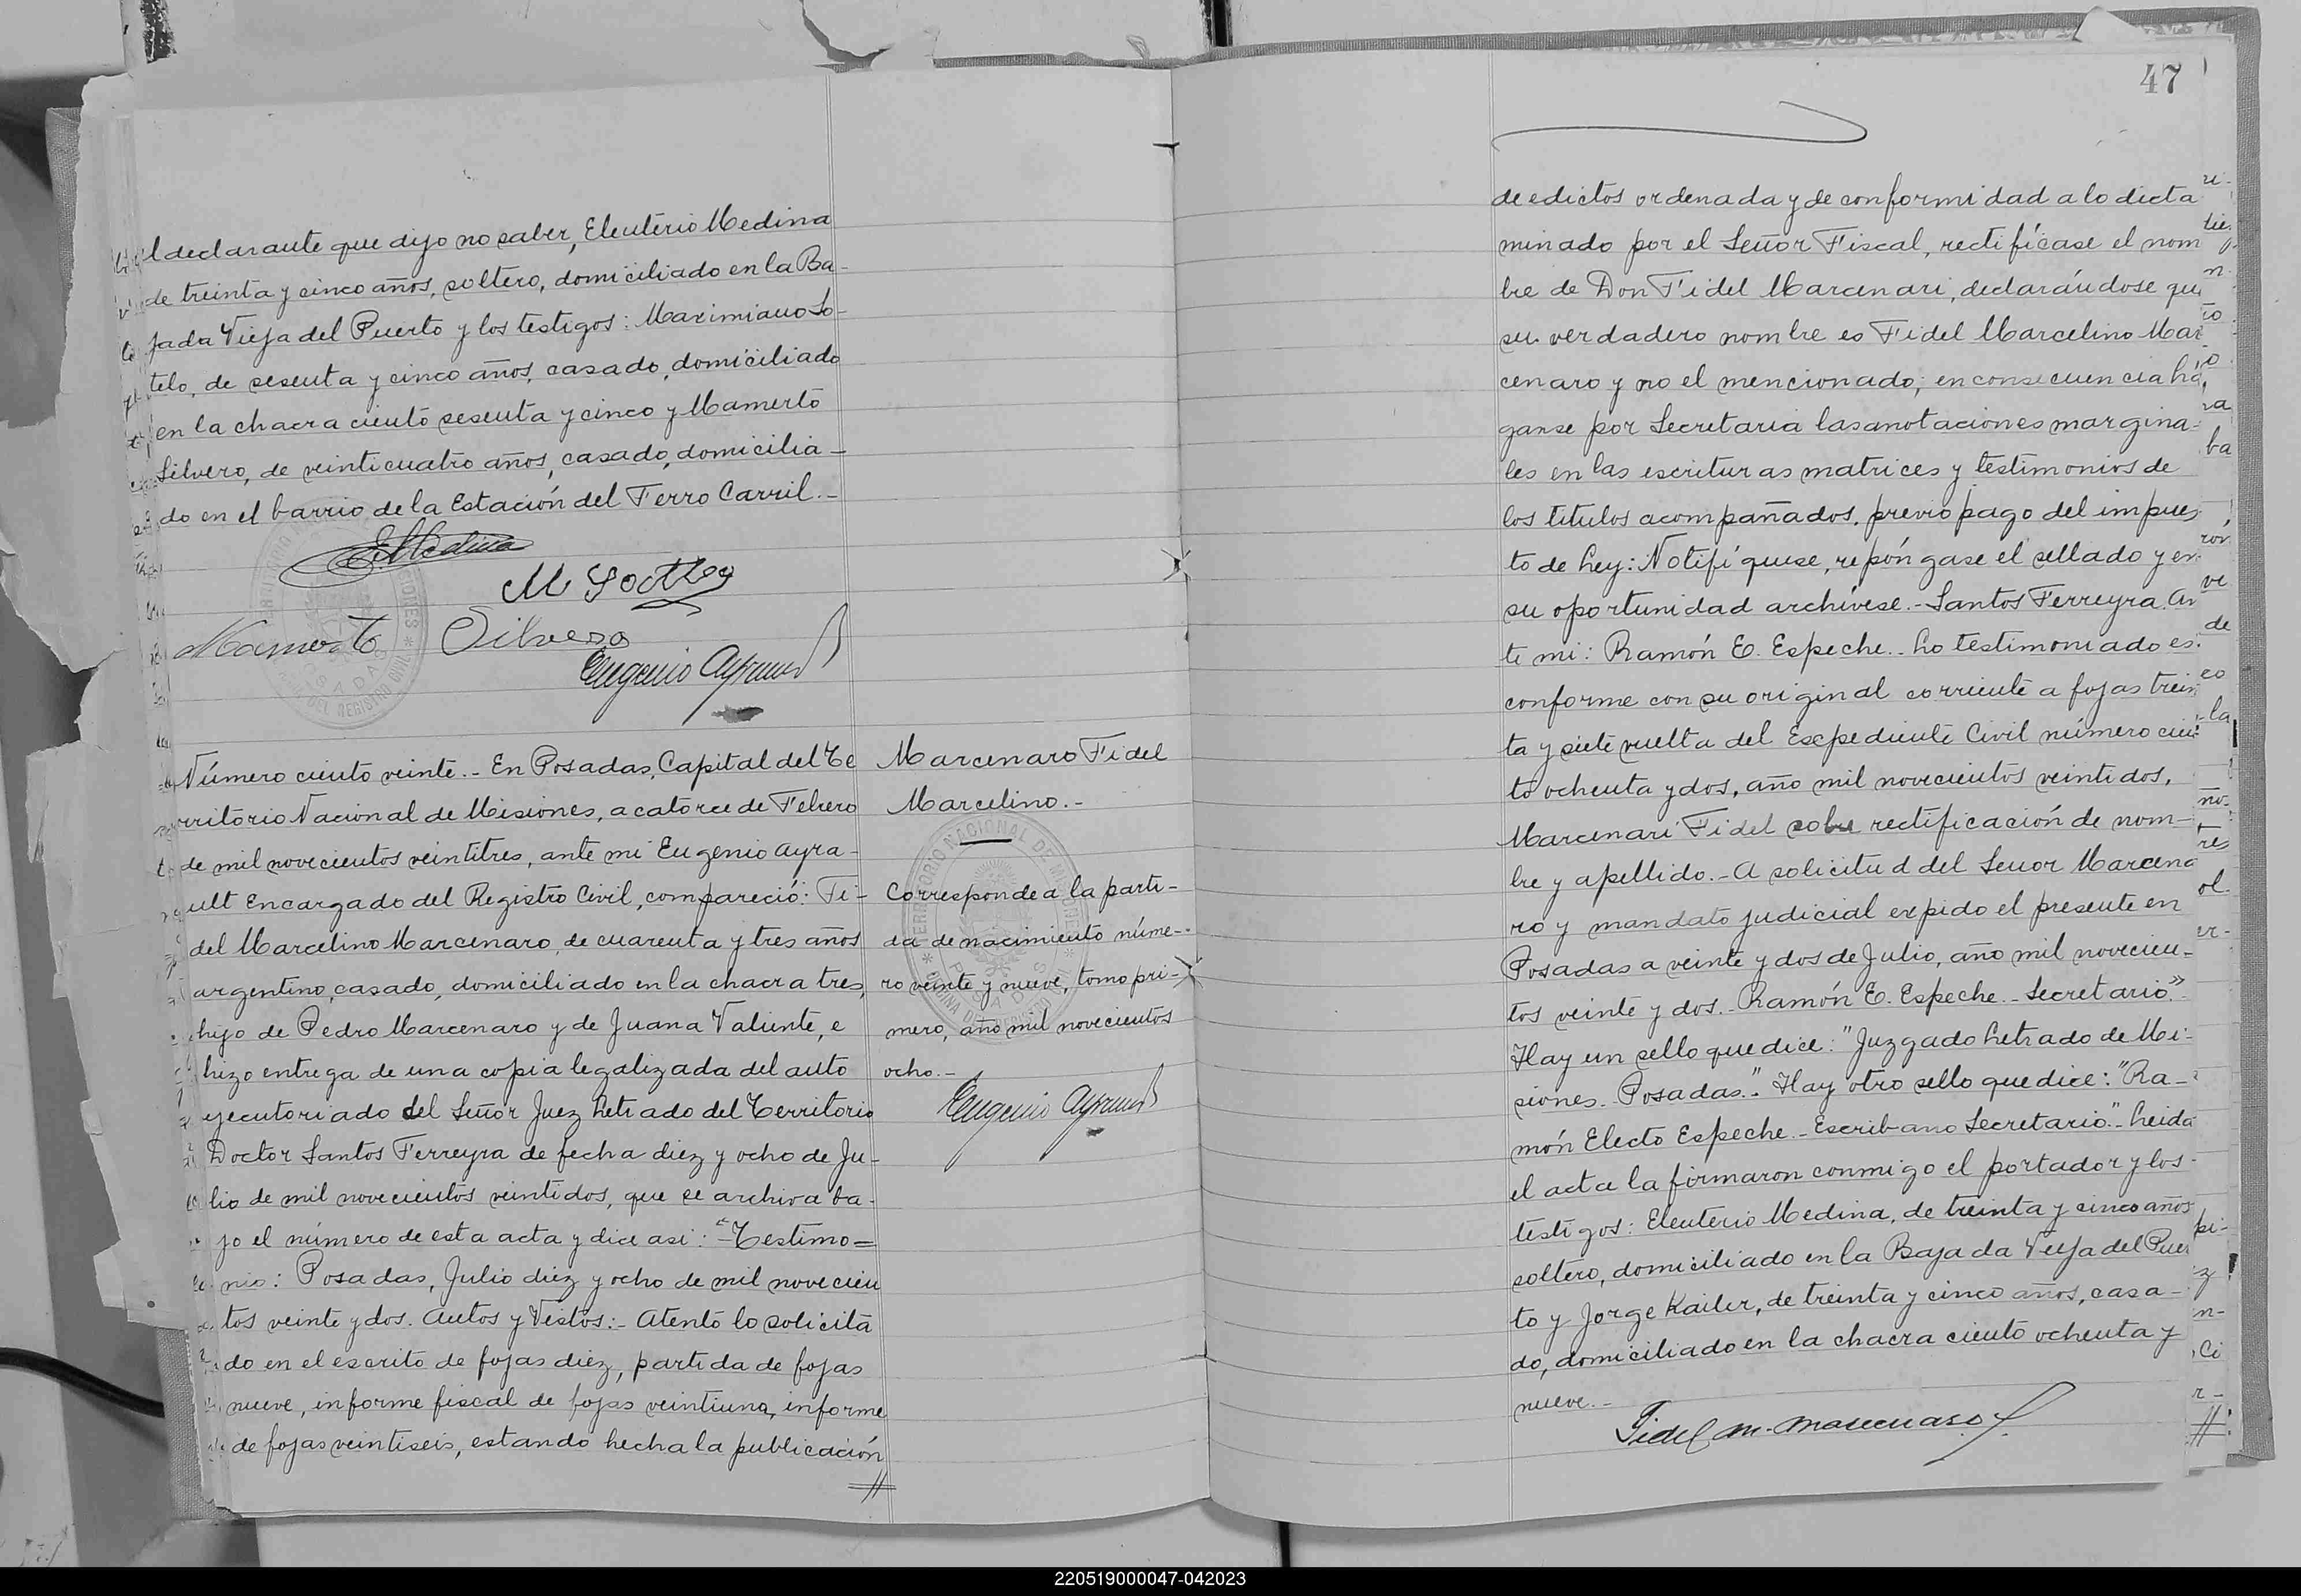 el declarante que dijo no saber, Eleuterio Medina
de treinta y cinco años, soltero, domiciliado en la Ba-
jada Vieja del Puerto y los testigos: Maximiano So-
telo, de sesenta y cinco años, casado, domiciliado
en la chacra ciento sesenta y cinco y Mamerto
Silvero, de veinticuatro años, casado, domicilia-
do en el barrio de la Estación del Ferro Carril.-
EMedina
Mamerto Silvero
Número ciento veinte.- En Posadas, Capital del Te
rritorio Nacional de Misiones, a catorce de Febrero
de mil novecientos veintitres, ante mi Eugenio Ayra-
ult Encargado del Registro Civil, compareció: Fi-
del Marcelino Marcenaro, de cuarenta y tres años
argentino, casado, domiciliado en la chacra tres,
hijo de Pedro Marcenaro y de Juana Valiente, e
hizo entrega de una copia legalizada del auto
ejecutoriado del Señor Juez Letrado del Territorio
Doctor Santos Ferreyra de fecha diez y ocho de Ju-
lio de mil novecientos veintidos, que se archiva ba-
jo el número de esta acta y dice asi: "Testimo=
nio: Posadas, Julio diez y ocho de mil novecien
tos veinte y dos. Autos y Vistos:- Atento lo solicita
do en el escrito de fojas diez, partida de fojas
nueve, informe fiscal de fojas veintiuna, informe
de fojas veintiseis, estando hecha la publicación
//
Marcenaro Fidel
Marcelino.-
Corresponde a la parti-
da de nacimiento núme-
ro veinte y nueve, tomo pri-
mero, año mil novecientos
ocho.-
Eugenio Ayrault
47
de edictos ordenada y de conformidad a lo dicta
minado por el Señor Fiscal, rectifícase el nom
bre de Don Fidel Marcenari, declarándose que
su verdadero nombre es Fidel Marcelino Mar
cenaro y no el mencionado; en consecuencia há
ganse por Secretaria las anotaciones margina-
les en las escrituras matrices y testimonios de
los titulos acompañados, previo pago del impues
to de Ley: Notifíquese, repóngase el sellado y en
su oportunidad archívese.- Santos Ferreyra. An
te mi: Ramón E. Espeche.- Lo testimoniado es
conforme con su original corriente a fojas trein
ta y siete vuelta del Expediente Civil número cien
to ochenta y dos, año mil novecientos veintidos,
Marcenari Fidel sobre rectificación de nom-
bre y apellido.- A solicitud del Señor Marcena
ro y mandato judicial expido el presente en
Posadas a veinte y dos de Julio, año mil novecien-
tos veinte y dos.- Ramón E. Espeche.- Secretario"
Hay un sello que dice: "Juzgado Letrado de Mi-
siones.- Posadas.". Hay otro sello que dice: "Ra-
món Electo Espeche.- Escribano Secretario".- Leida
el acta la firmaron conmigo el portador y los
testigos: Eleuterio Medina, de treinta y cinco años
soltero, domiciliado en la Bajada Vieja del Puer
to y Jorge Kailer, de treinta y cinco años, casa-
do, domiciliado en la chacra ciento ochenta y
nueve.-
Fidel M. Marcenaro
220519000047-042023